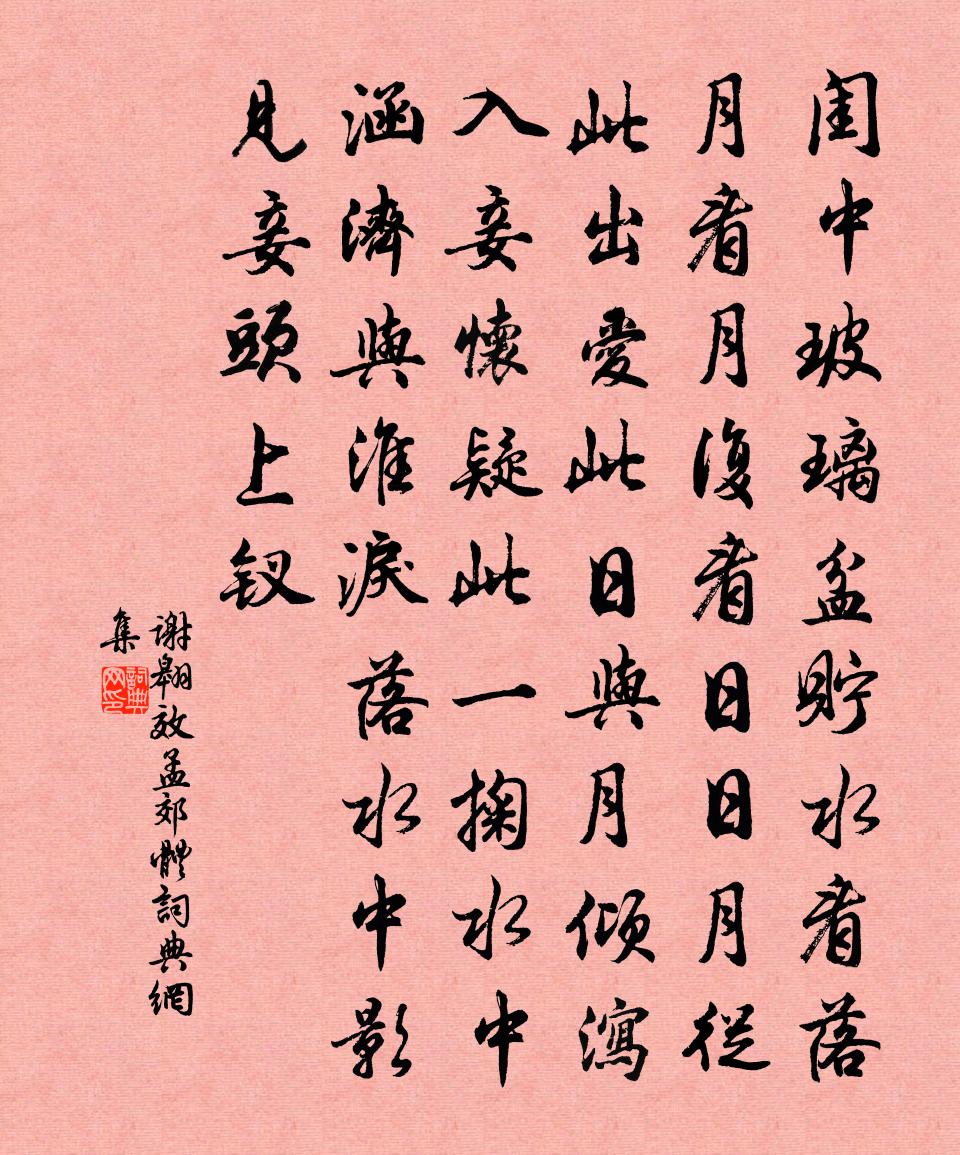 闺中玻璃盆貯水看落
月看月復看日日月從
此出愛此日與月傾瀉
入妾懷疑此一掬水中
涵濟與淮淚落水中影
見妾頭上钗
謝翱效孟郊體詞典網
集
詞典
网印